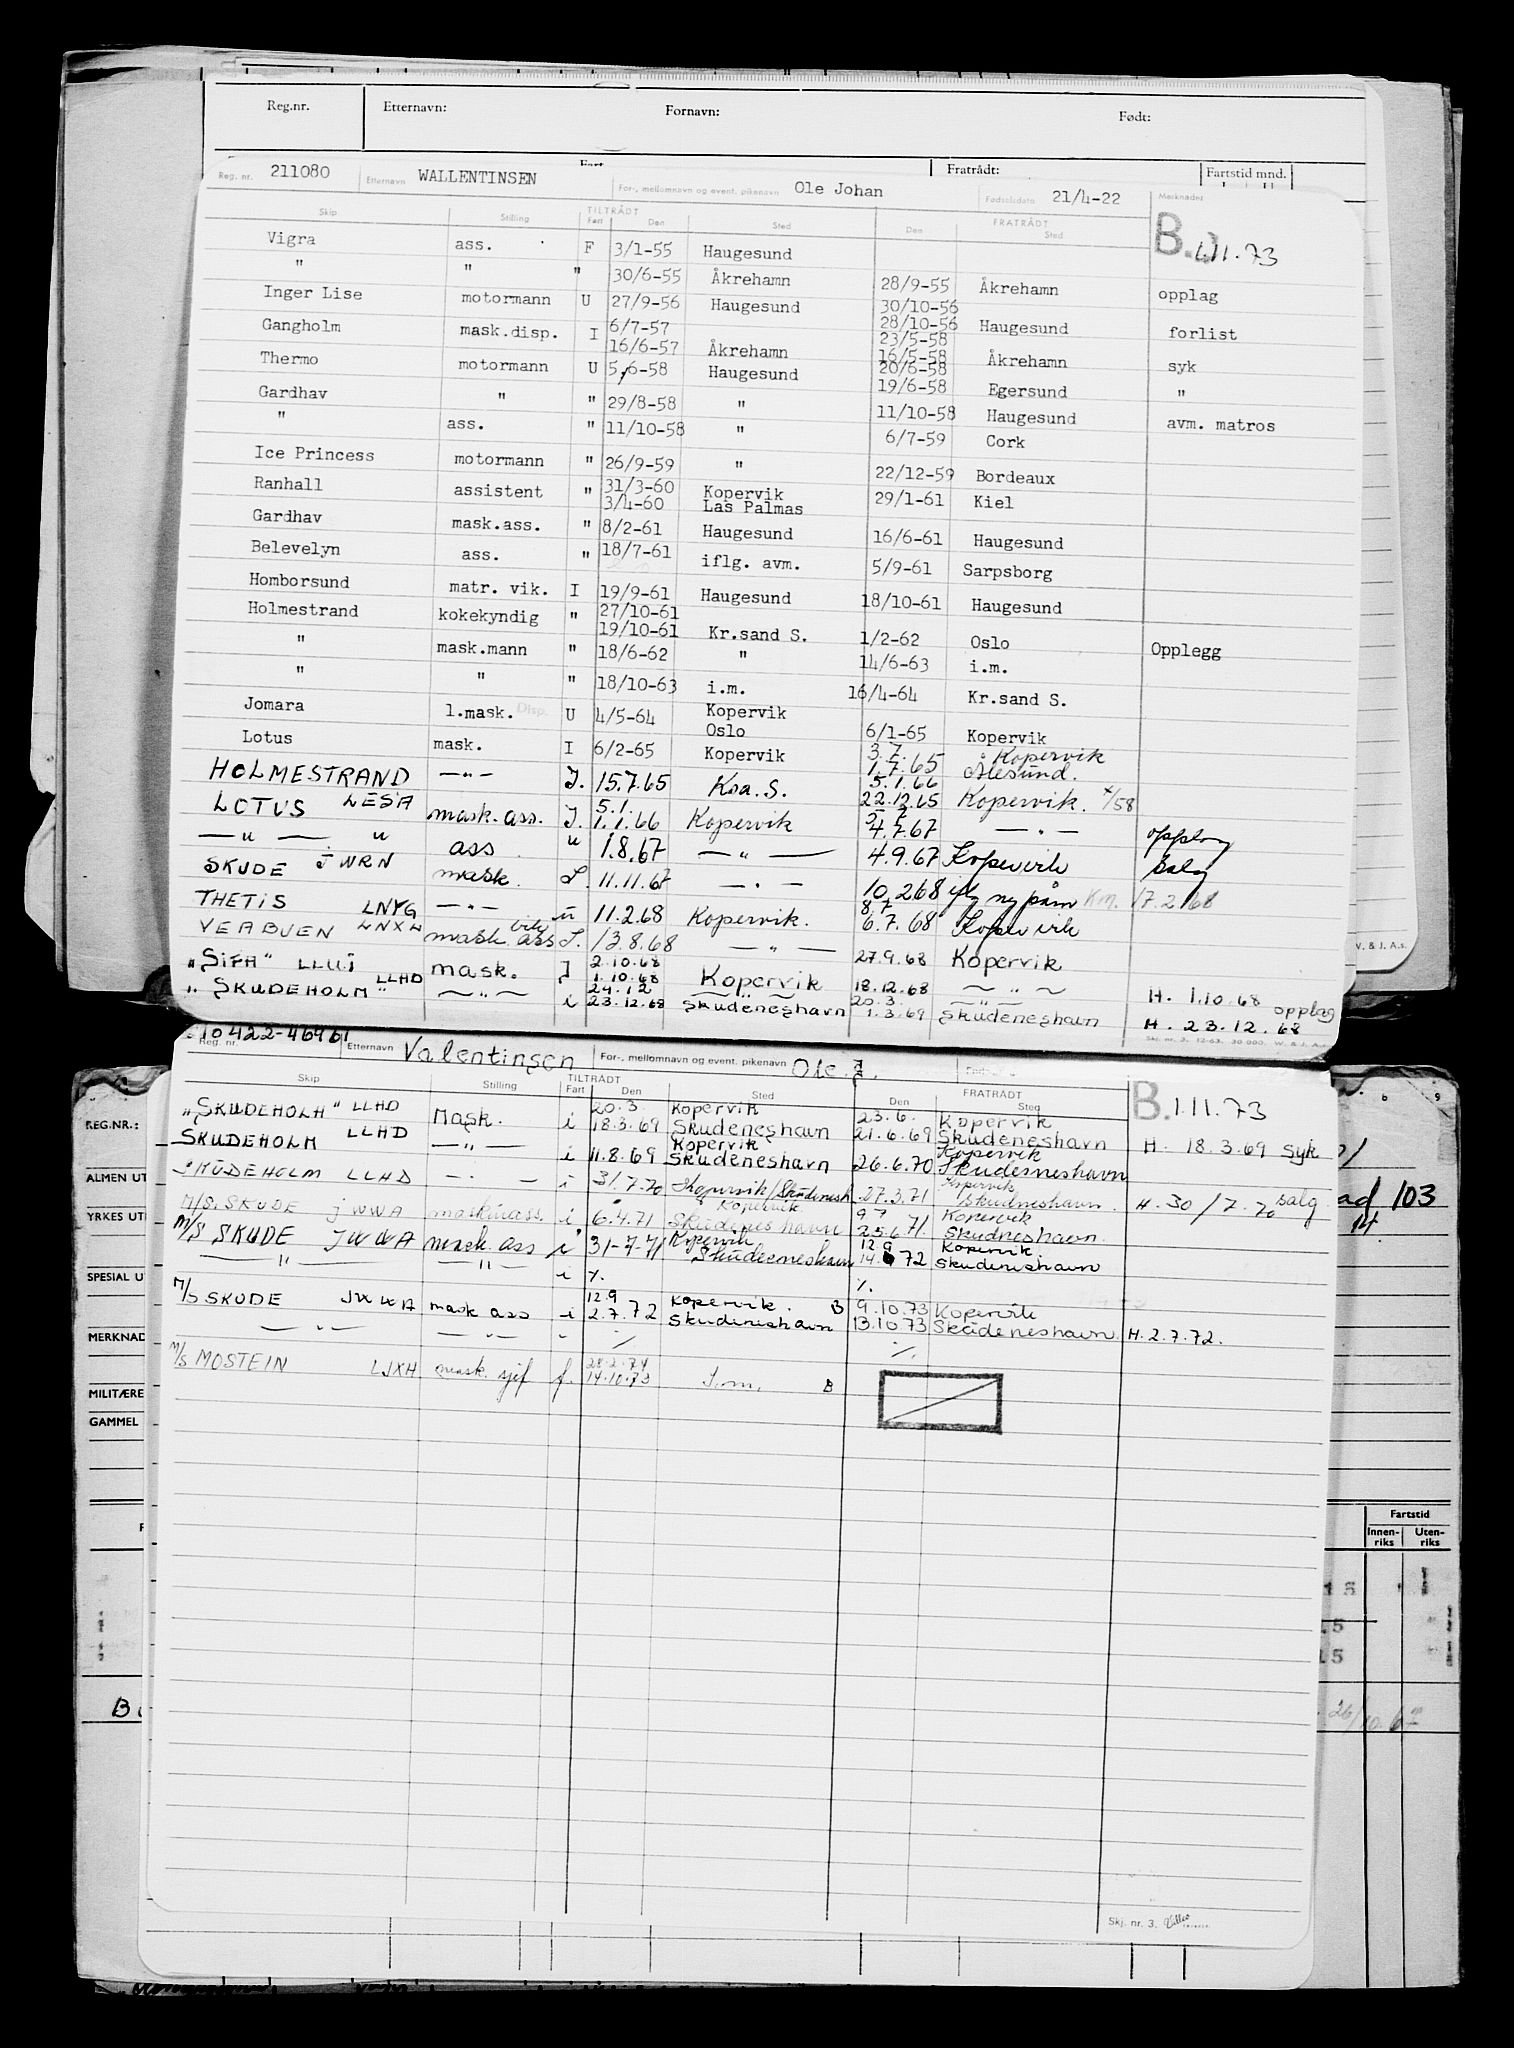 Reg.nr. Etternavn: Fornavn: Født:
Fratrådt: Fartstid mnd.
Reg. nr. 211080 Etternavn WALLENTINSEN For-, mellomnavn og event. pikenavn Ole Johan Fødselsdato 21/4-22 Merknader
Skip Stilling TILTRÅDT Fart Den Sted Den FRATRÅDT Sted B. 1.11.73
Vigra ass. F 3/1-55 Haugesund
" " " 30/6-55 Åkrehamn 28/9-55 Åkrehamn opplag
Inger Lise motormann U 27/9-56 Haugesund 30/10-56
28/10-56 Haugesund forlist
Gangholm mask.disp. I 6/7-57 23/5-58
16/6-57 Åkrehamn 16/5-58 Åkrehamn syk
Thermo motormann U 5/6-58 Haugesund 20/6-58
19/6-58 Egersund "
Gardhav " " 29/8-58 " 11/10-58 Haugesund avm. matros
" ass. " 11/10-58 " 6/7-59 Cork
Ice Princess motormann " 26/9-59 " 22/12-59 Bordeaux
Ranhall assistent " 31/3-60 Kopervik 29/1-61 Kiel
3/4-60 Las Palmas
Gardhav mask.ass. " 8/2-61 Haugesund 16/6-61 Haugesund
Belevelyn ass. " 18/7-61 iflg. avm. 5/9-61 Sarpsborg
Homborsund matr. vik. I 19/9-61 Haugesund 18/10-61 Haugesund
Holmestrand kokekyndig " 27/10-61
19/10-61 Kr.sand S. 1/2-62 Oslo Opplegg
" mask.mann " 18/6-62 " 14/6-63 i.m.
" " " 18/10-63 i.m. 16/4-64 Kr.sand S.
Jomara 1.mask. Disp. U 4/5-64 Kopervik
Oslo 6/1-65 Kopervik
Lotus mask. I 6/2-65 Kopervik 3.7. Kopervik
1.7.65 Ålesund.
HOLMESTRAND —"— I. 15.7.65 Krа.S. 5.1.66
22.12.65 Kopervik. 4/58
LOTUS LESA mask.ass. I. 5.1.
1.1.66 Kopervik 4.7.67 —"— opplag
—"— " ass " 1.8.67 —"— 4.9.67 Kopervik Salg
SKUDE JWRN mask. I. 11.11.67 —"— 10.2.68 ifg ny påm Km. 17.2.68
THETIS LNYG —"— u 11.2.68 Kopervik. 8.7
6.7.68 Kopervik
VEABUEN LNXW mask ass vik I. 13.8.68 —"— 27.9.68 Kopervik
"SIFA" LLUI mask. I 2.10.68
1.10.68 Kopervik 18.12.68 —"— H. 1.10.68 opplag
"SKUDEHOLM" LLHD —"— i 24.12
23.12.68 Skudeneshavn 20.3.
1.3.69 Skudeneshavn H. 23.12.68
W. & J. A.s.
Skj. nr. 3. 12-63. 30 000. W. & J. A.s
210422-46961
Reg. nr. Etternavn Valentinsen For-, mellomnavn og event. pikenavn Ole J.
Skip Stilling TILTRÅDT Fart Den Sted Den FRATRÅDT Sted B. 1.11.73
"SKUDEHOLM" LLHD Mask. i 20.3. Kopervik 23.6. Kopervik
18.3.69 Skudeneshavn 21.6.69 Skudeneshavn H. 18.3.69 syk
SKUDEHOLM LLHD —"— i Kopervik Kopervik
11.8.69 Skudeneshavn 26.6.70 Skudesneshavn
SKUDEHOLM LLHD —"— i 31.7.70 Kopervik/Skudenesh 27.3.71 Kopervik
Skudneshavn. H. 30/7.70 salg
M/S. SKUDE JWWA maskinass. i 6.4.71 Kopervik. 9 7 Kopervik
Skudeneshavn 25.6.71 Skudneshavn.
M/S SKUDE JWWA mask. ass i 31-7-71 Kopervik 12.9 Kopervik.
Skudesneshavn 14.6 72 Skudeneshavn
—"— —"— i %. %.
M/S SKUDE JWWA mask ass i 12.9 Kopervik. B 9.10.73 Kopervik
2.7.72 Skudeneshavn 13.10.73 Skudeneshavn. H. 2.7.72.
—"— —"— " % %.
M/S MOSTEIN LJXH mask. sjef f. 28.2.74
14.10.73 I.m. B
REG.NR.:
ALMEN UT
YRKES UT
SPESIAL U
MERKNAD
MILITÆRE
GAMMEL
ad 103
14
Fartstid
Innen-riks Uten-riks
26/10.67
Skj. nr. 3.